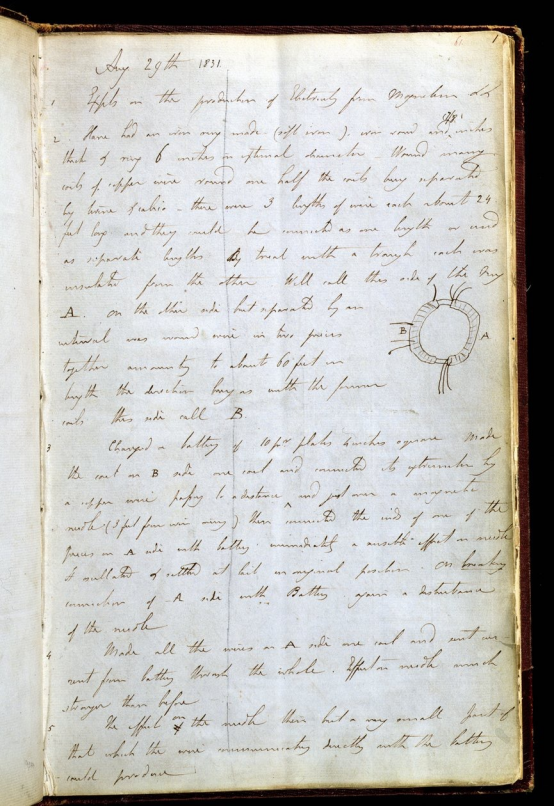 Aug 29th 1831.
1 Expts on the production of Electricity from Magnetism &c &c
2 Have had an iron ring made (soft iron), iron round and 7/8 inches
thick & ring 6 inches in external diameter. Wound many
coils of copper wire round one half the coils being separated
by twine & calico - there were 3 lengths of wire each about 24
feet long and they could be connected as one length or used
as separate lengths. By trial with a trough each was
insulated from the other. Will call this side of the ring
A. on the other side but separated by an
interval was wound wire in two pieces
together amounting to about 60 feet in
length the direction being as with the former
coils this side call B.
B
A
3 Charged a battery of 10 pr plates 4 inches square. Made
the coil on B side one coil and connected its extremities by
a copper wire passing to a distance and just over a magnetic
needle (3 feet from iron ring) then connected the ends of one of the
pieces on A side with battery. immediately a sensible effect on needle
It oscillated & settled at last in original position. On breaking
connection of A side with Battery again a disturbance
of the needle
4 Made all the wires on A side one coil and sent cur
rent from battery through the whole. Effect on needle much
stronger than before
5 The effect on the needle then but a very small part of
that which the wire communicating directly with the battery
could produce